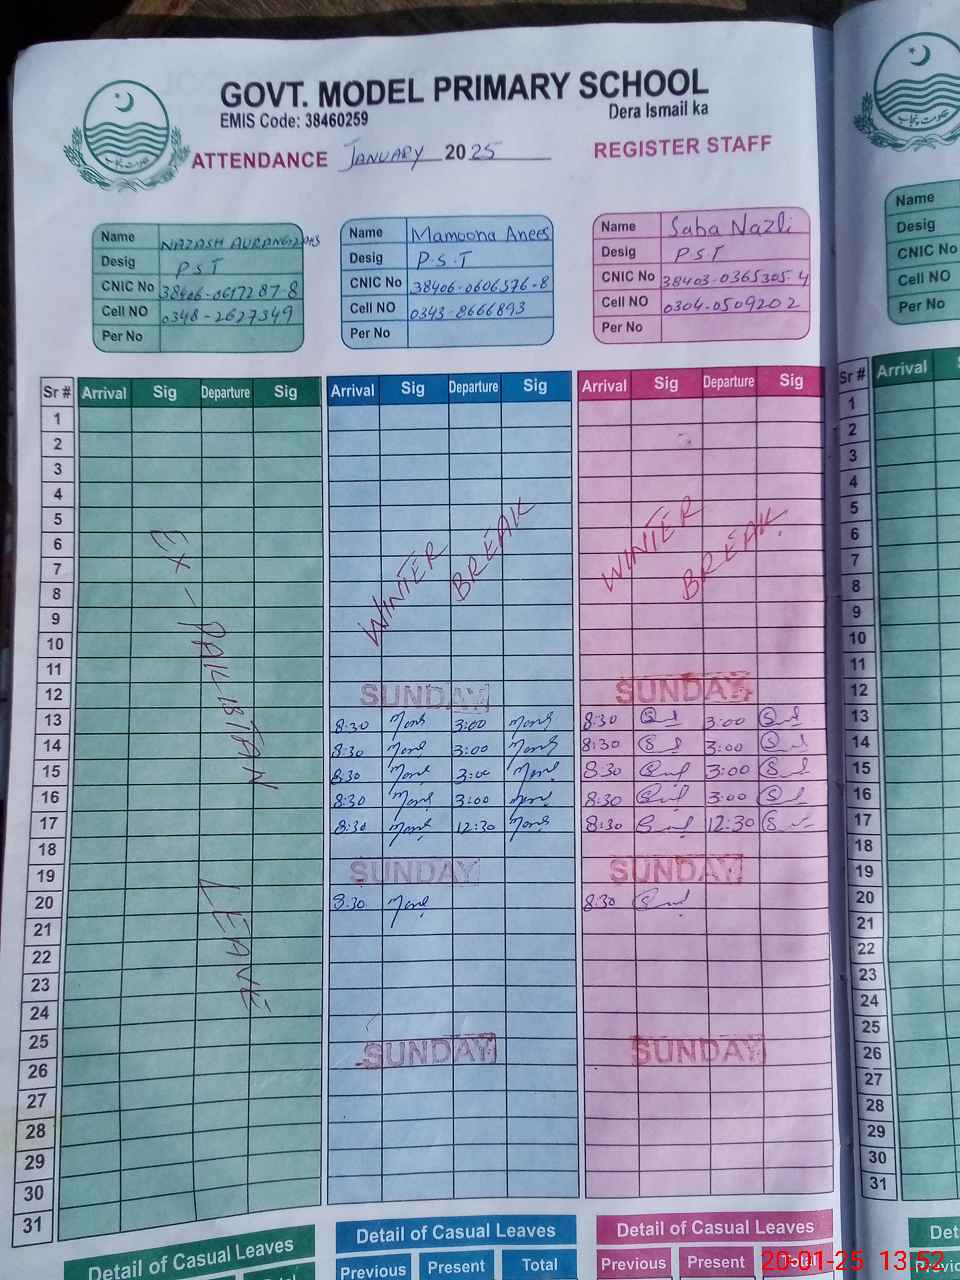 GOVT. MODEL PRIMARY SCHOOL
EMIS Code: 38460259 Dera Ismail ka
ATTENDANCE JANUARY 2025 REGISTER STAFF
Name Name Mamoona Anees Name Saba Nazli Name
Desig P.S.T Desig P.S.T Desig P.S.T Desig
CNIC No 38406-0617287-8 CNIC No 38406-0606576-8 CNIC No 38403-0365305-4 CNIC No
Cell NO 0348-2627349 Cell NO 0343-8666893 Cell NO 0304-0509202 Cell NO
Per No Per No Per No Per No
Sr # Arrival Sig Departure Sig Arrival Sig Departure Sig Arrival Sig Departure Sig Sr # Arrival
1 1
2 2
3 3
4 4
5 5
6 6
7 7
8 8
9 9
10 10
11 11
Ex-PAKISTAN LEAVE
WINTER BREAK WINTER BREAK
12 SUNDAY SUNDAY 12
13 8:30 3:00 8:30 3:00 13
14 8:30 3:00 8:30 3:00 14
15 8:30 3:00 8:30 3:00 15
16 8:30 3:00 8:30 3:00 16
17 8:30 12:30 8:30 12:30 17
18 18
19 SUNDAY SUNDAY 19
20 8:30 8:30 20
21 21
22 22
23 23
24 24
25 25
26 SUNDAY SUNDAY 26
27 27
28 28
29 29
30 30
31 31
Detail of Casual Leaves Detail of Casual Leaves Detail of Casual Leaves
Previous Present Total Previous Present Total
20-01-25 13:52